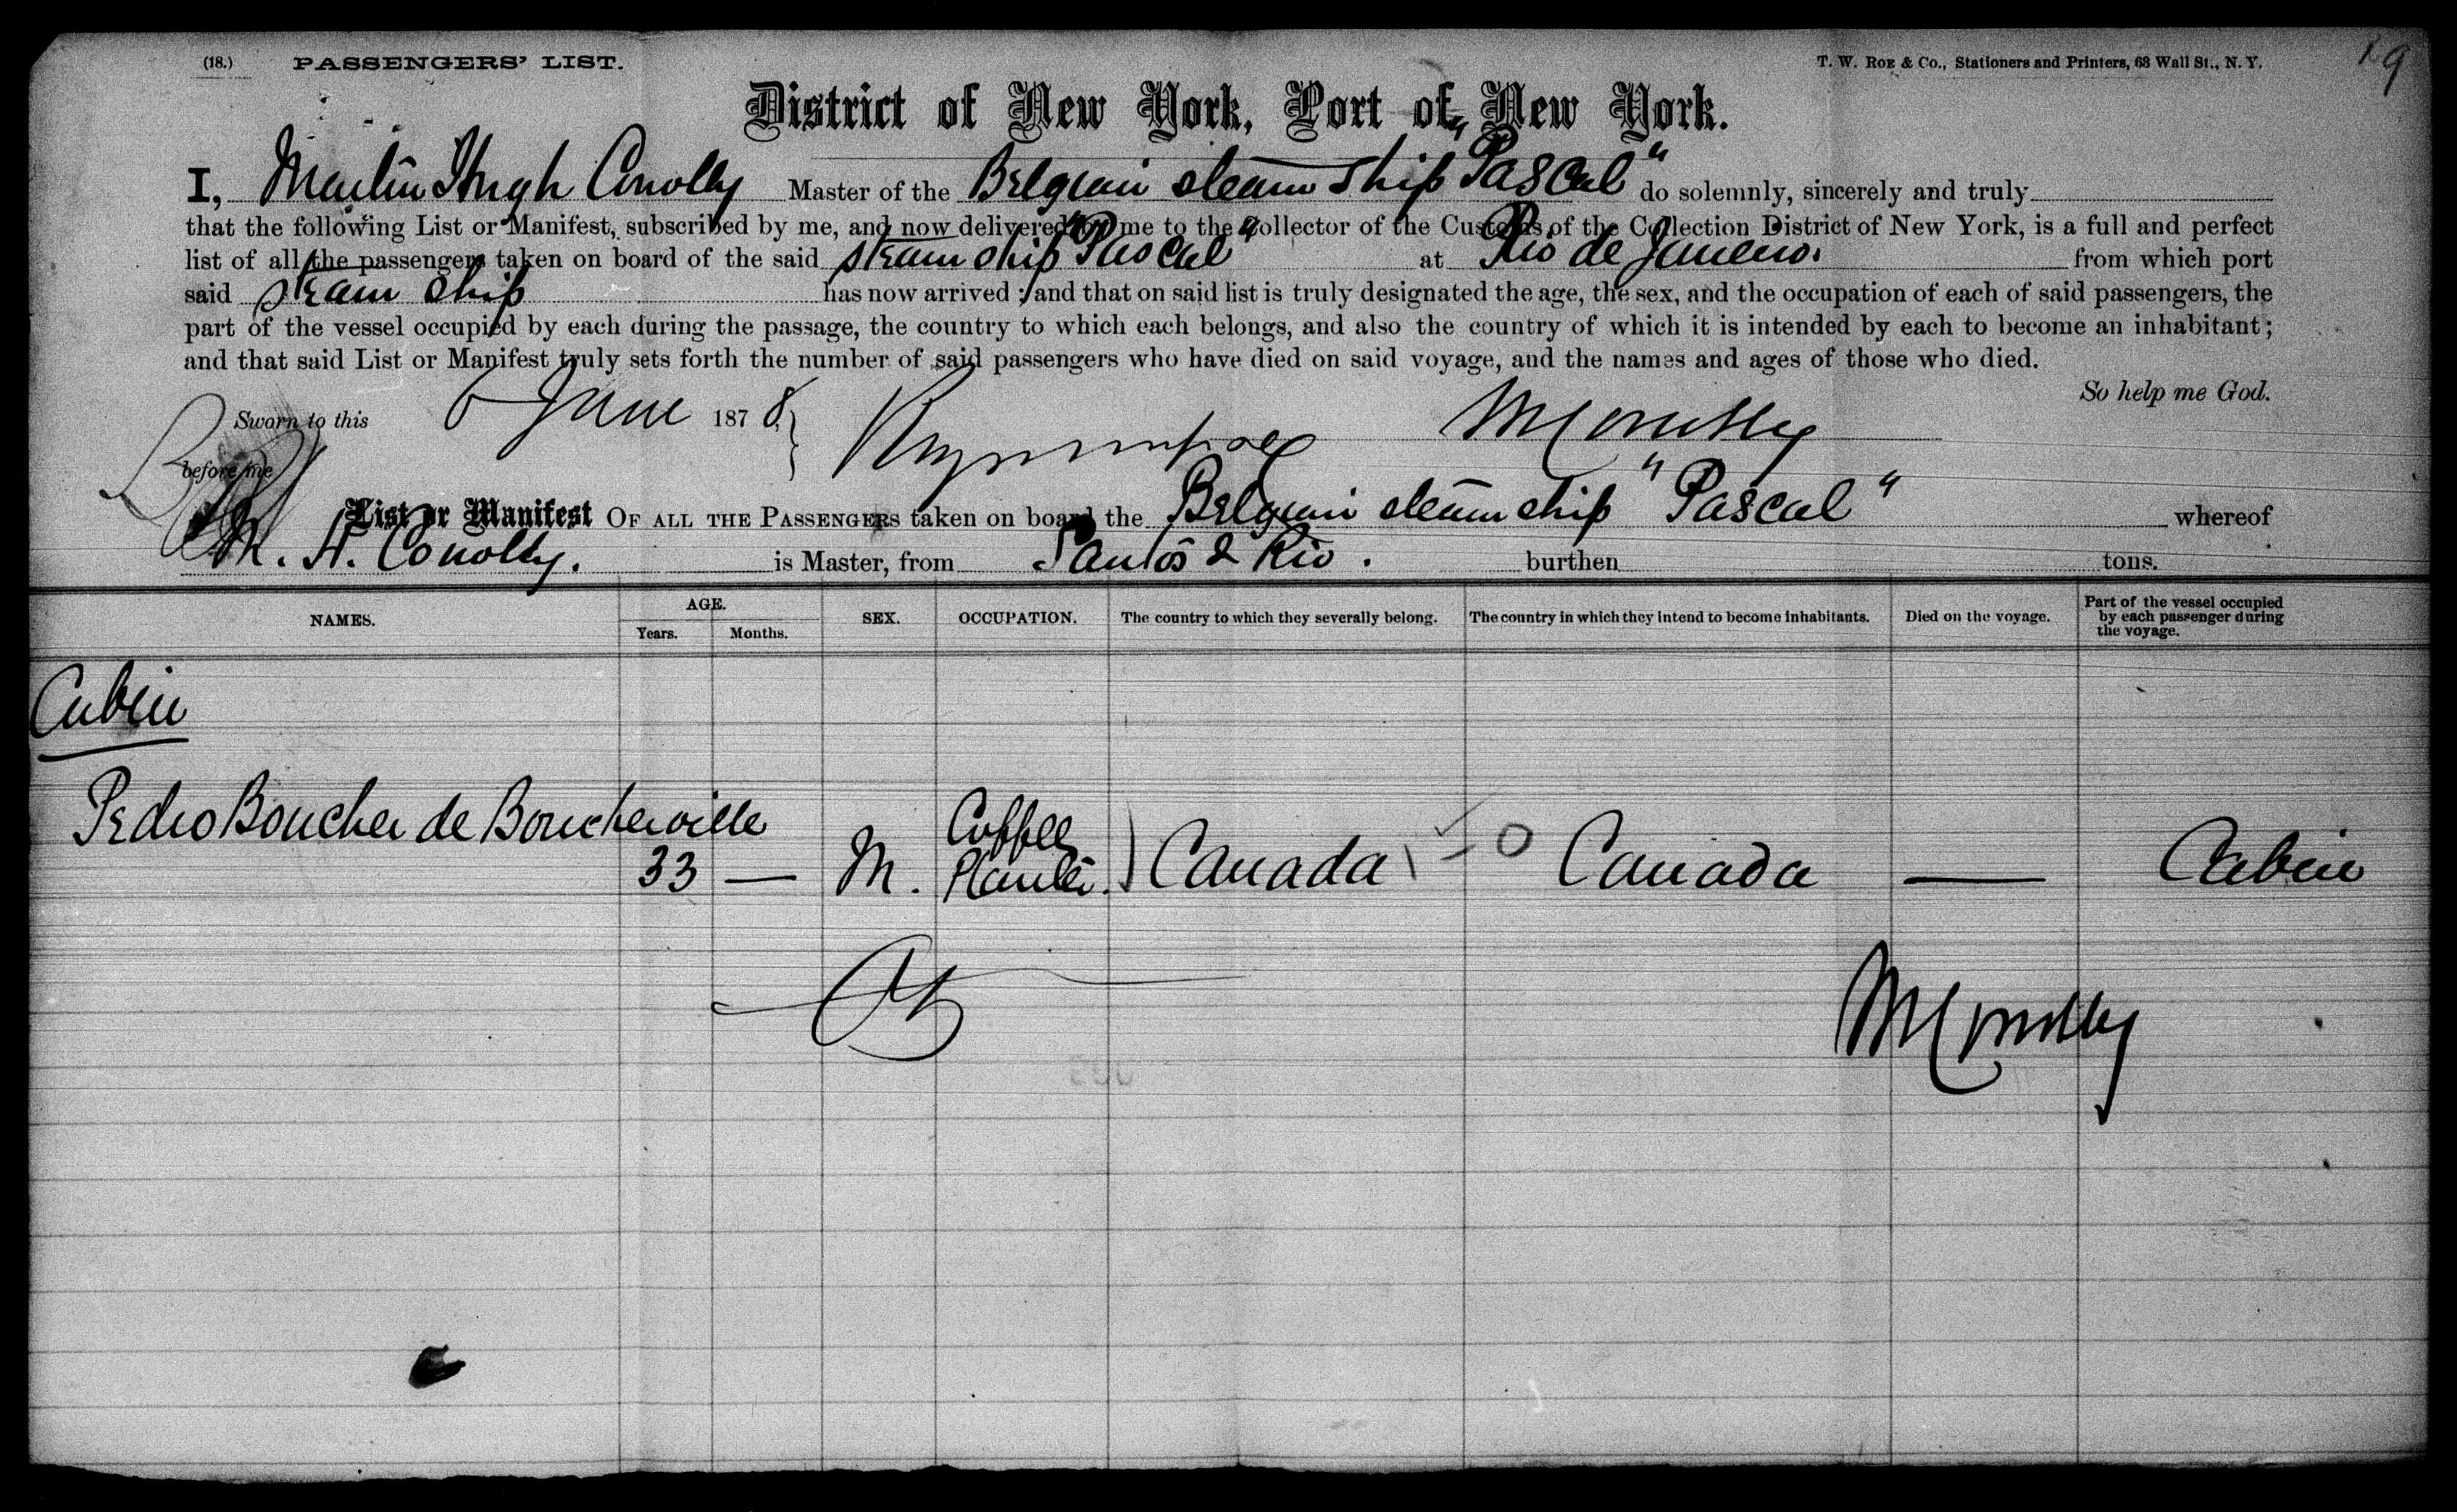 (18.) PASSENGERS' LIST. T. W. ROE & Co., Stationers and Printers, 63 Wall St., N. Y.
District of New York, Port of New York.
I, Martin Hugh Conolly Master of the Belgian steam ship "Pascal" do solemnly, sincerely and truly
that the following List or Manifest, subscribed by me, and now delivered by me to the Collector of the Customs of the Collection District of New York, is a full and perfect
list of all the passengers taken on board of the said steam ship "Pascal" at Rio de Janeiro. from which port
said steam ship has now arrived ; and that on said list is truly designated the age, the sex, and the occupation of each of said passengers, the
part of the vessel occupied by each during the passage, the country to which each belongs, and also the country of which it is intended by each to become an inhabitant ;
and that said List or Manifest truly sets forth the number of said passengers who have died on said voyage, and the names and ages of those who died.
So help me God.
Sworn to this 6 June 1878 MConolly
before me
List or Manifest OF ALL THE PASSENGERS taken on board the Belgian steam ship "Pascal" whereof
M. H. Conolly. is Master, from Santos & Rio. burthen tons.
NAMES. AGE. Years. Months. SEX. OCCUPATION. The country to which they severally belong. The country in which they intend to become inhabitants. Died on the voyage. Part of the vessel occupied by each passenger during the voyage.
Cabin
Pedro Boucher de Boucherville
33 — M. Coffee Planter. Canada Canada — Cabin
MConolly